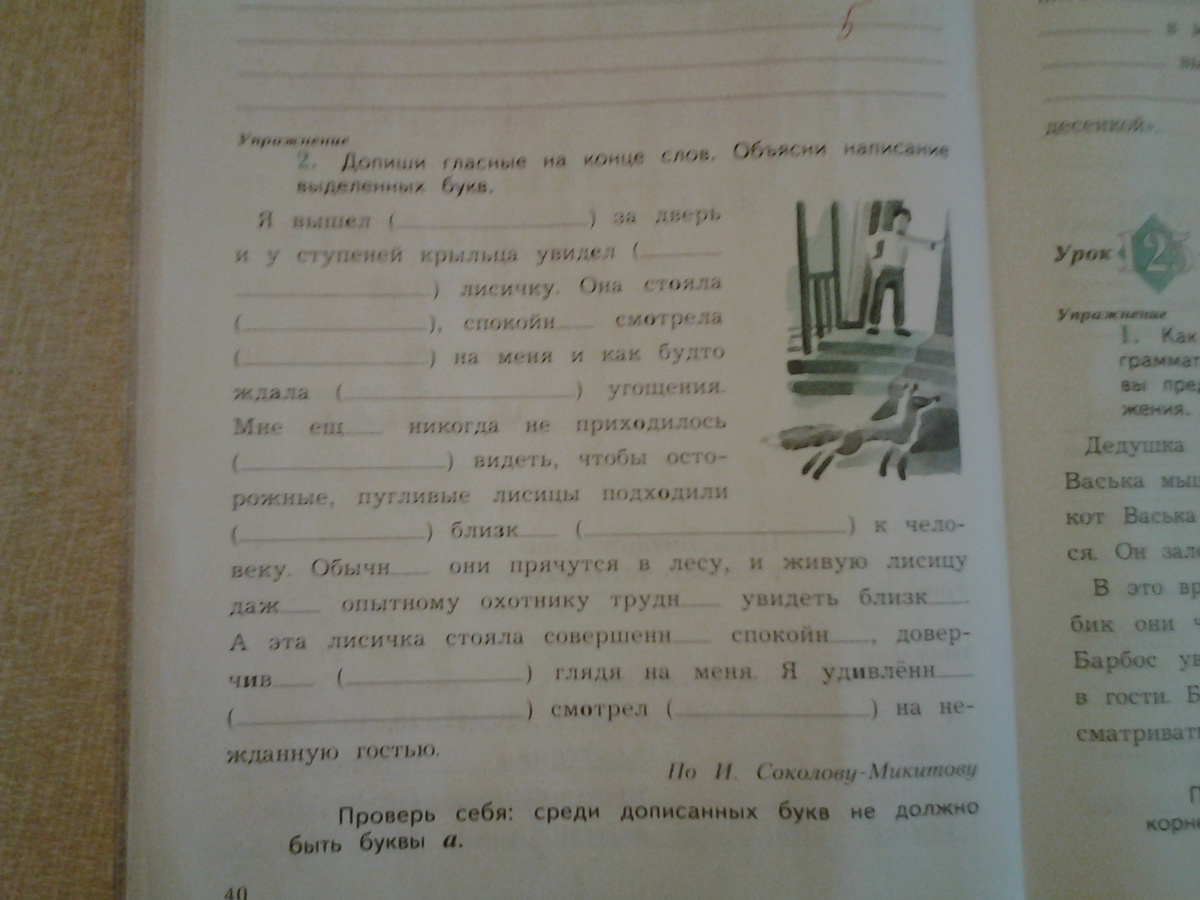 5
Упражнение
2. Допиши гласные на конце слов. Объясни написание
выделенных букв.
Я вышел (____________) за дверь
и у ступеней крыльца увидел (_____
____________) лисичку. Она стояла
(____________), спокойн___ смотрела
(____________) на меня и как будто
ждала (____________) угощения.
Мне ещ___ никогда не приходилось
(____________) видеть, чтобы осто-
рожные, пугливые лисицы подходили
(____________) близк___ (____________) к чело-
веку. Обычн___ они прячутся в лесу, и живую лисицу
даж___ опытному охотнику трудн___ увидеть близк___.
А эта лисичка стояла совершенн___ спокойн___, довер-
чив___ (____________) глядя на меня. Я удивлённ___
(____________) смотрел (____________) на не-
жданную гостью.
По И. Соколову-Микитову
Проверь себя: среди дописанных букв не должно
быть буквы а.
40
десенкой».
Урок 2
Упражнение
1. Как
граммат
вы пред
жения.
Дедушка
Васька мыш
кот Васька
ся. Он зале
В это вр
бик они ч
Барбос ув
в гости. Б
сматриват
П
корн